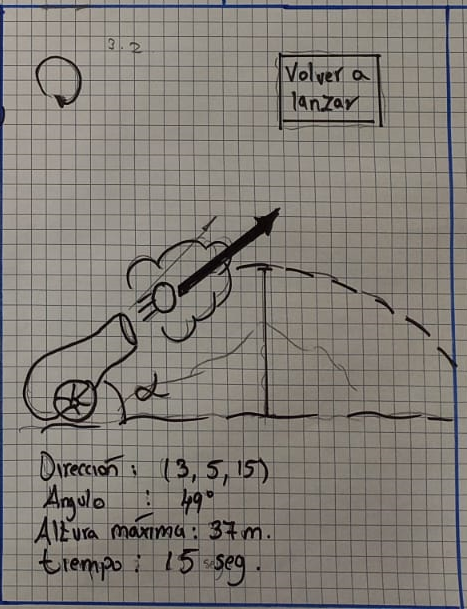 3.2
Volver a
lanzar
α
Dirección : (3, 5, 15)
Angulo : 49°
Altura máxima: 37m.
tiempo : 15 seg.